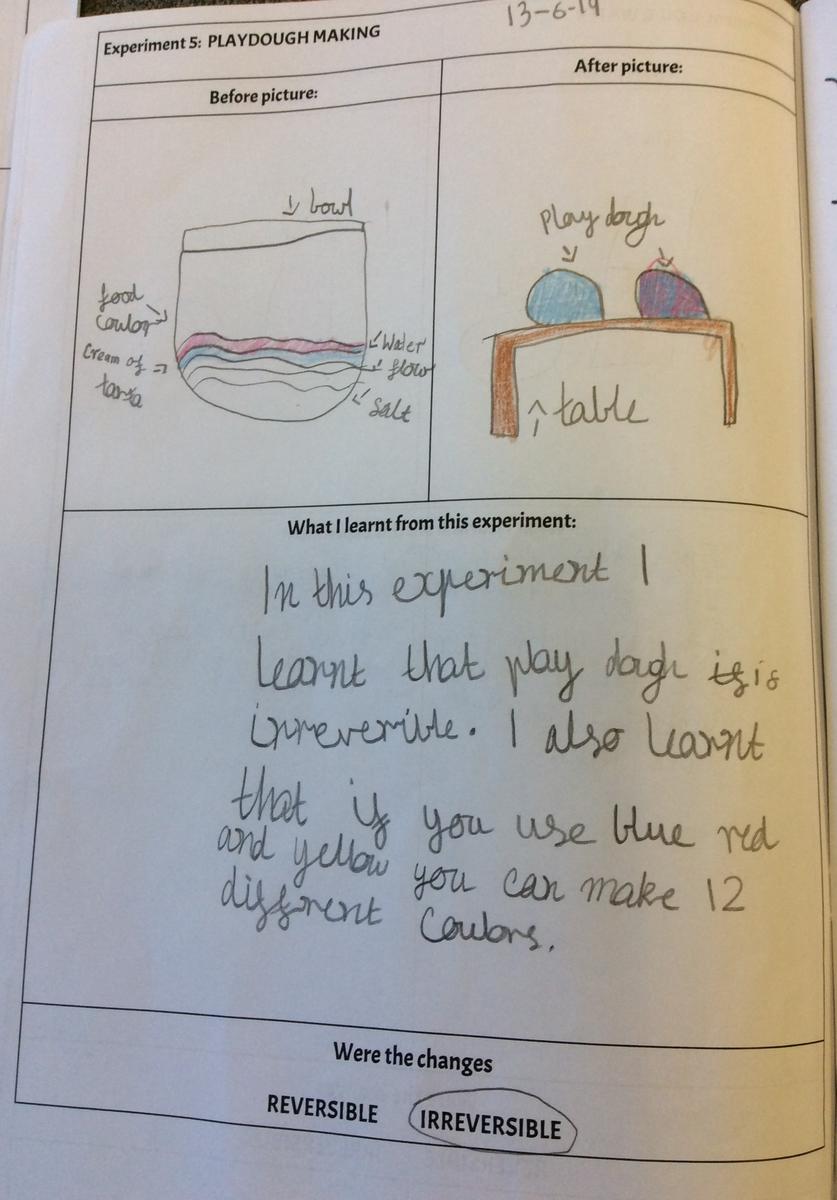 13-6-19
Experiment 5: PLAYDOUGH MAKING
Before picture:
After picture:
bowl
food
coulor
Cream of
tarta
Water
flowr
Salt
play dough
table
What I learnt from this experiment:
In this experiment I
learnt that play dough is is
irreverible. I also learnt
that if you use blue red
and yellow you can make 12
diffrent coulors.
Were the changes
REVERSIBLE IRREVERSIBLE